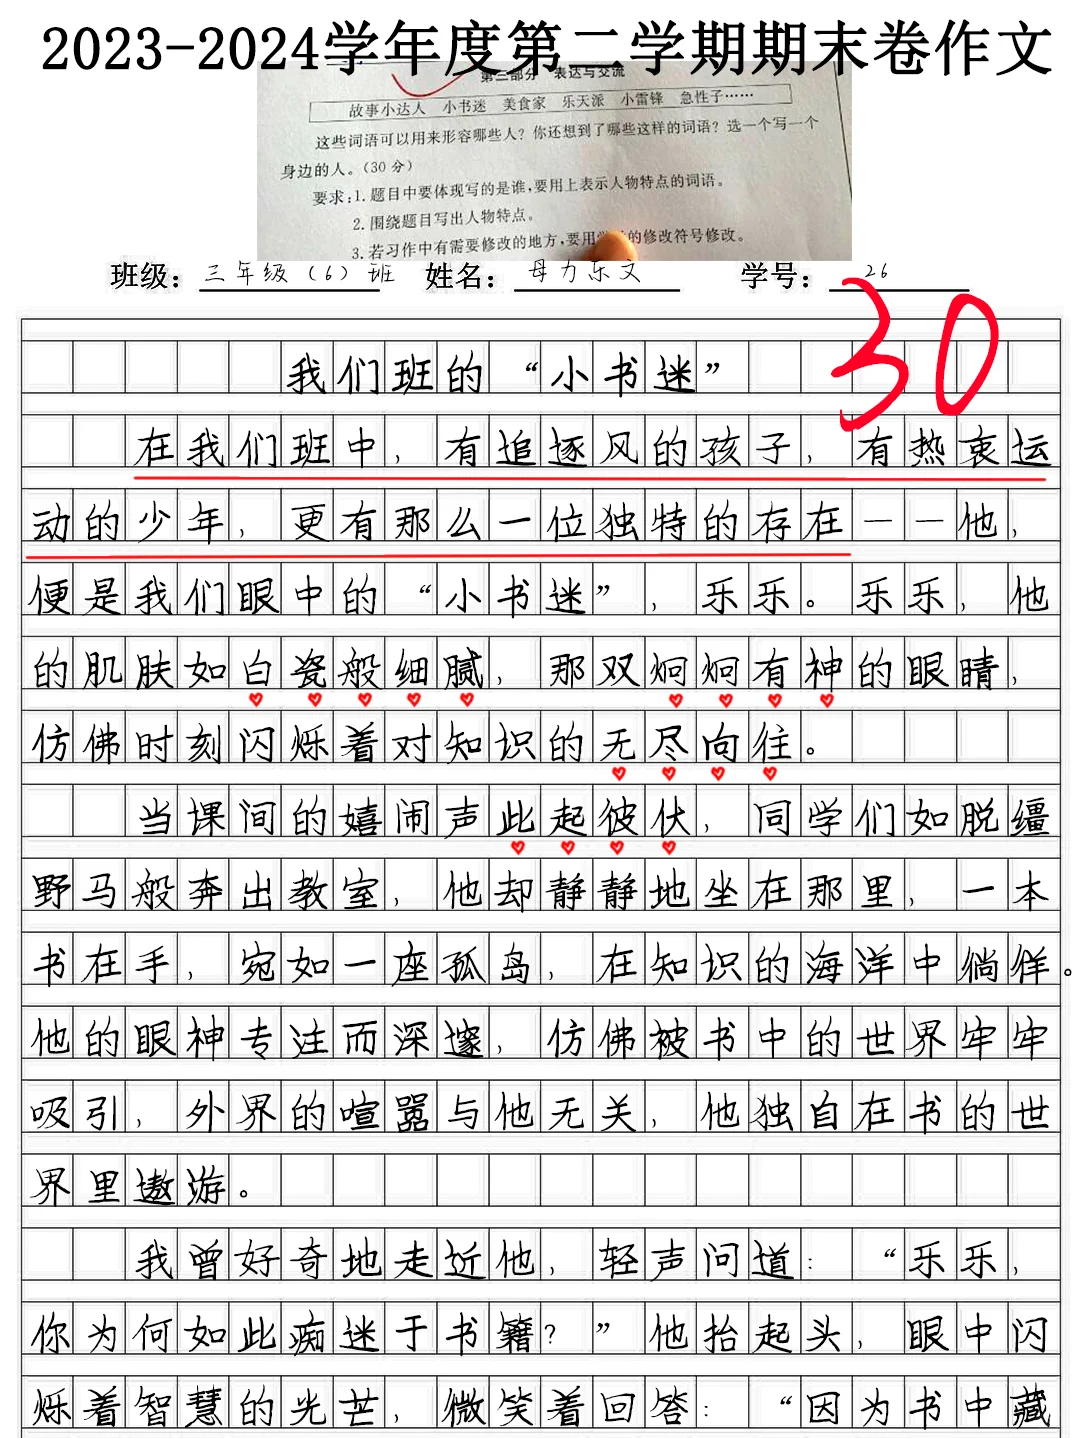 2023-2024学年度第二学期期末卷作文
第三部分 表达与交流
故事小达人 小书迷 美食家 乐天派 小雷锋 急性子……
这些词语可以用来形容哪些人？你还想到了哪些这样的词语？选一个写一个
身边的人。（30分）
要求：1. 题目中要体现写的是谁，要用上表示人物特点的词语。
2. 围绕题目写出人物特点。
3. 若习作中有需要修改的地方，要用学过的修改符号修改。
班级：三年级（6）班 姓名：母力乐文 学号：26
30
我们班的“小书迷”
在我们班中，有追逐风的孩子，有热衷运
动的少年，更有那么一位独特的存在——他，
便是我们眼中的“小书迷”，乐乐。乐乐，他
的肌肤如白瓷般细腻，那双炯炯有神的眼睛，
仿佛时刻闪烁着对知识的无尽向往。
当课间的嬉闹声此起彼伏，同学们如脱缰
野马般奔出教室，他却静静地坐在那里，一本
书在手，宛如一座孤岛，在知识的海洋中徜徉。
他的眼神专注而深邃，仿佛被书中的世界牢牢
吸引，外界的喧嚣与他无关，他独自在书的世
界里遨游。
我曾好奇地走近他，轻声问道：“乐乐，
你为何如此痴迷于书籍？”他抬起头，眼中闪
烁着智慧的光芒，微笑着回答：“因为书中藏